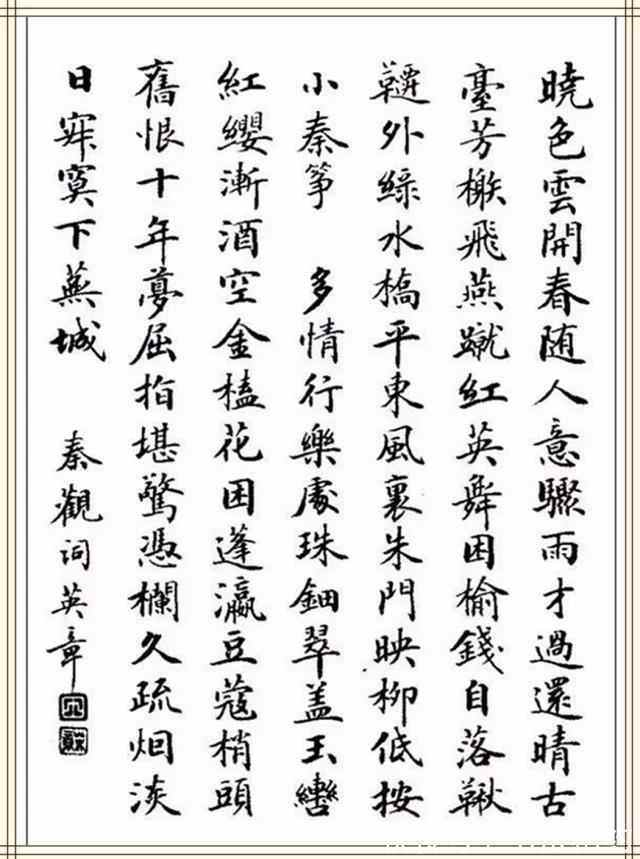 曉色雲開春随人意驟雨才過還晴古
臺芳榭飛燕蹴红英舞困榆錢自落鞦
韆外綠水橋平東風裏朱門映柳低按
小秦筝 多情行樂處珠鈿翠盖玉轡
紅纓漸酒空金榼花困蓬瀛豆蔻梢頭
舊恨十年夢屈指堪驚憑欄久疏烟淡
日寂寞下蕪城 秦觀詞英章